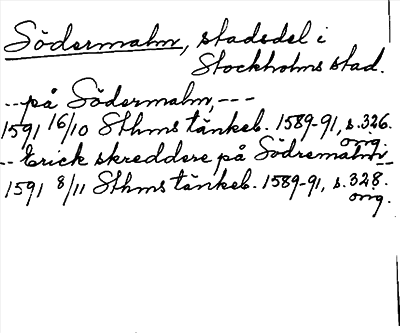 Södermalm, stadsdel i
Stockholms stad.
--på Södermalm,---
1591 16/10 Sthms tänkeb. 1589-91, s.326.
orig.
--Erick skreddere på Södremalm--
1591 8/11 Sthms tänkeb. 1589-91, s.328.
orig.